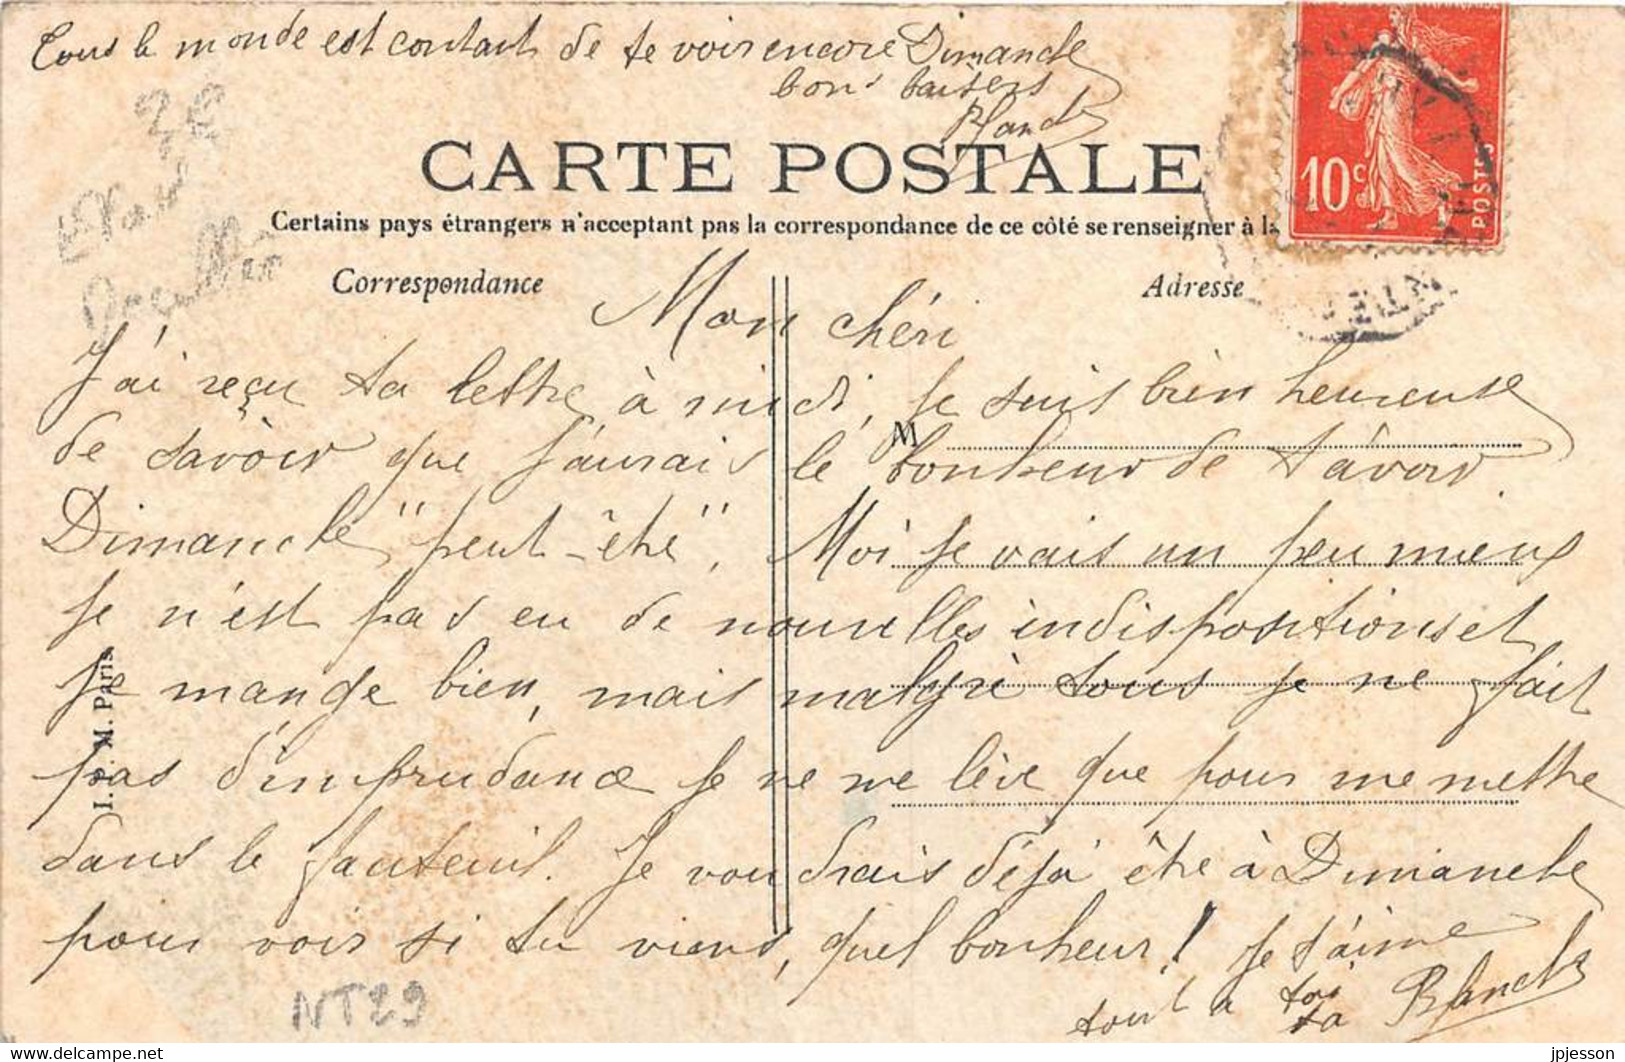 Tous le monde est contant de te voir encore Dimanche
bons baisers
Blanche
3€
CARTE POSTALE
Certains pays étrangers n'acceptant pas la correspondance de ce côté se renseigner à la
10c
POSTES
Correspondance
Adresse
Mon chéri
J'ai reçu ta lettre à midi, Je suis bien heureuse
M
de savoir que j'aurais le bonheur de t'avoir
Dimanche "peut-être", Moi je vais un peu mieux
Je n'est pas eu de nouvelles indispositions et
Je mange bien, mais malgré tous je ne fait
pas d'imprudance Je ne me lève que pour me mettre
dans le fauteuil. Je voudrais déjà être à Dimanche
pour voir si tu viens, quel bonheur! Je t'aime
tout a toi
ta Blanche
I. P. M. Paris
NT29
jpjesson
(c) delcampe.net